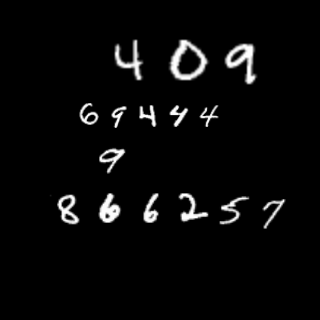 409
69444
9
866257